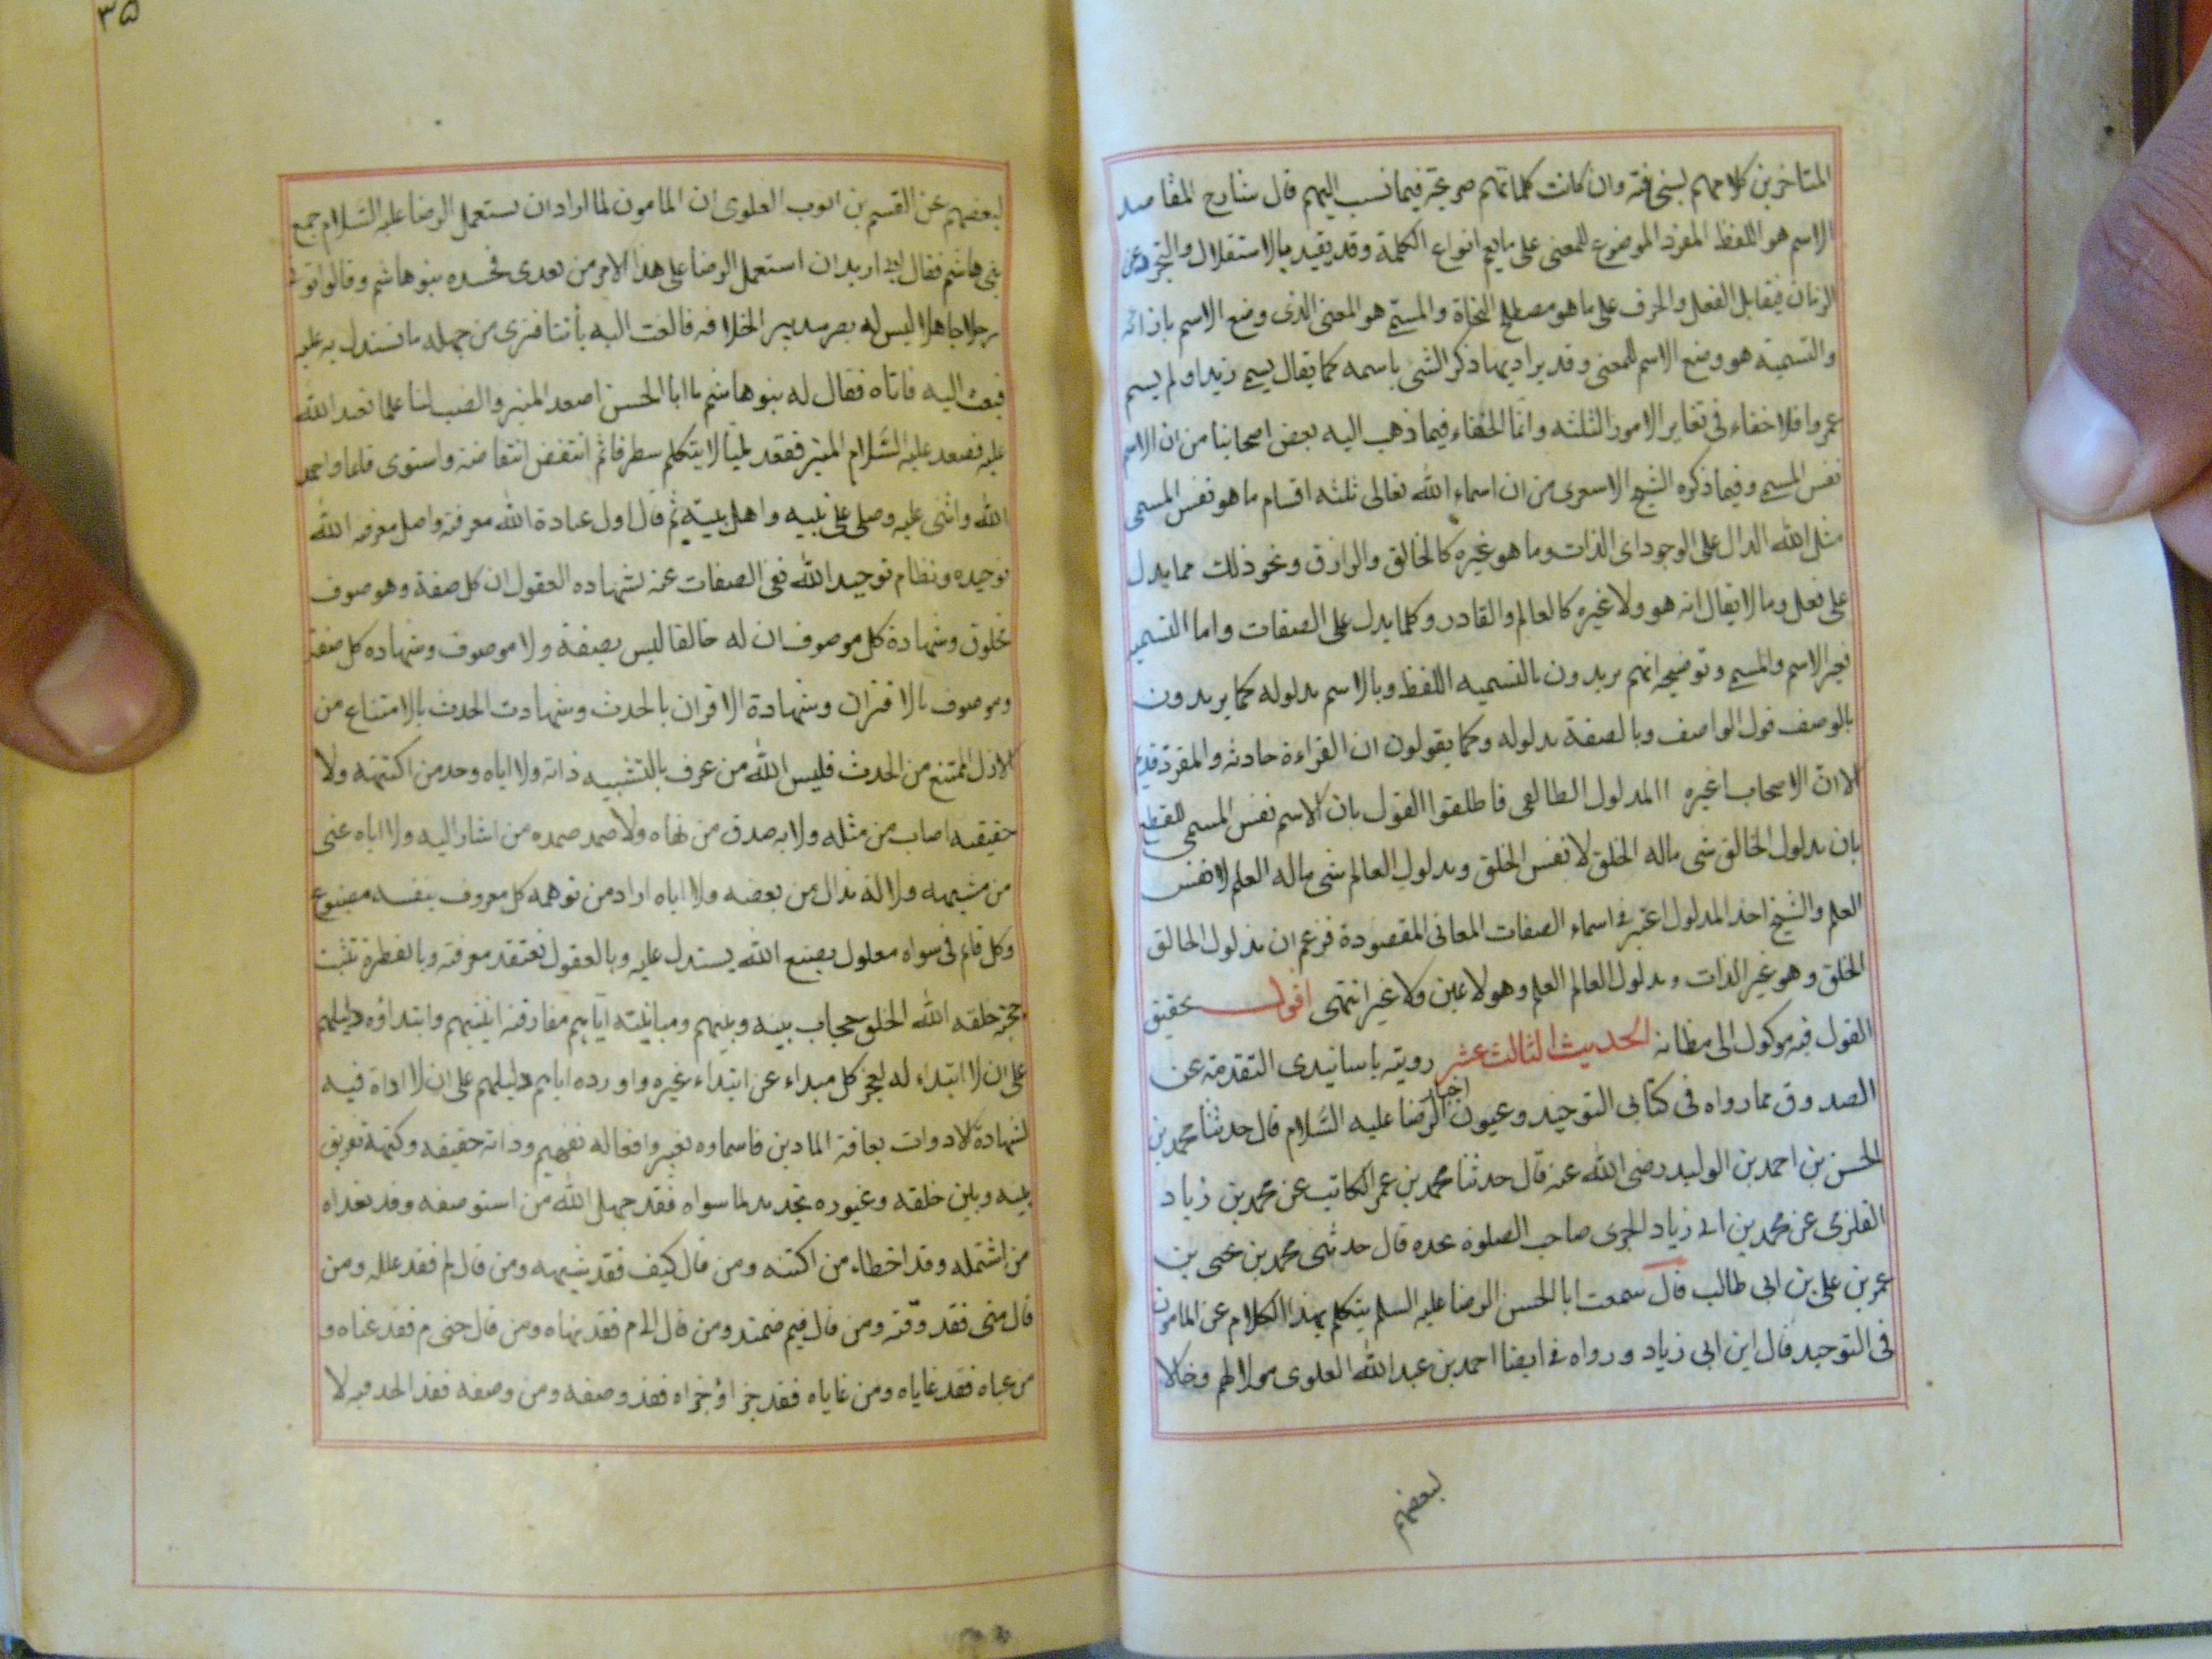 المتاخرين كلامهم بسخافته وان كانت كلماتهم صريحة فيما نسب اليهم قال شارح المقاصد
الاسم هو اللفظ المفرد الموضوع للمعنى على ما يعم انواع الكلمة وقد يقيد بالاستقلال والتجرد عن
الزمان فيقابل الفعل والحرف على ما هو مصطلح النحاة والمسمى هو المعنى الذى وضع الاسم بازائه
والتسمية هو وضع الاسم للمعنى وقد يراد بها ذكر الشئ باسمه كما يقال يسمى زيدا ولم يسم
عمروا فلا خفاء فى تغاير الامور الثلثه وانما الخفاء فيما ذهب اليه بعض اصحابنا من ان الاسم
نفس المسمى وفيما ذكره الشيخ الاسعرى من ان اسماء الله تعالى ثلثه اقسام ما هو نفس المسمى
مثل الله الدال على الوجود اى الذات وما هو غيره كالخالق والرازق ونحو ذلك مما يدل
على فعل وما لا يقال انه هو ولا غيره كالعالم والقادر وكلما يدل على الصفات واما التسميه
فغير الاسم والمسمى وتوضيحه انهم يريدون بالتسميه اللفظ وبالاسم مدلوله كما يريدون
بالوصف قول الواصف وبالصفة مدلوله وكما يقولون ان القراءة حادثه والمقرو قديم
الا ان الاصحاب اغيره االمدلول الطالعى فاطلقوا القول بان الاسم نفس المسمى للقطع
بان مدلول الخالق شى ماله الخلق لا نفس الخلق ومدلول العالم شى ماله العلم لا نفس
العلم والشيخ اخذ المدلول اعم فى اسماء الصفات المعانى المقصودة فزعم ان مدلول الخالق
الخلق وهو غير الذات ومدلول العالم العلم وهو لا عين ولا غير انتهى اقول تحقيق
القول فيه موكول الى مظانه الحديث الثالث عشر رويته باسانيدى التقدمة عن
الصدوق مما رواه فى كتابى التوحيد وعيون اخبار الرضا عليه السلام قال حدثنا محمد بن
الحسن بن احمد بن الوليد رضى الله عنه قال حدثنا محمد بن عمر الكاتب عن محمد بن زياد
القلزمى عن محمد بن ابى زياد الجدى صاحب الصلوة بجده قال حدثنى محمد بن يحيى بن
عمر بن على بن ابى طالب قال سمعت ابا الحسن الرضا عليه السلم يتكلم بهذا الكلام عن المامون
فى التوحيد قال ابن ابى زياد ورواه فى ايضا احمد بن عبد الله العلوى مولا لهم وخالا
لبعضهم
٣٥
لبعضهم عن القسم بن ايوب العلوى ان المامون لما اراد ان يستعمل الرضا عليه السلام جمع
بنى هاشم فقال انى اريد ان استعمل الرضا على هذا الامر من بعدى فحسده بنو هاشم وقالوا تولى
رجلا جاهلا ليس له بصر بتدبير الخلافه فابعث اليه يأتنا فترى من جهله ما تستدل به عليه
فبعث اليه فاتاه فقال له بنو هاشم يا ابا الحسن اصعد المنبر وانصب لنا علما نعبد الله
عليه فصعد عليه السلام المنبر فقعد مليا لا يتكلم مطرقا ثم انتفض انتفاضة واستوى قائما وحمد
الله واثنى عليه وصلى على نبيه واهل بيته ثم قال اول عبادة الله معرفته واصل معرفه الله
توحيده ونظام توحيد الله نفى الصفات عنه لشهاده العقول ان كل صفة وهو صوف
مخلوق وشهادة كل موصوف ان له خالقا ليس بصفة ولا موصوف وشهاده كل صفة
وموصوف بالاقتران وشهادة الاقران بالحدث وشهادت الحدث بالامتناع من
الازل الممتنع من الحدث فليس الله من عرف بالتشبيه ذاته ولا اياه وحد من اكتنهه ولا
حقيقه اصاب من مثله ولا به صدق من نهاه ولا صمد صمده من اشار اليه ولا اياه عنى
من شبهه ولا له تذلل من بعضه ولا اياه اراد من توهمه كل معروف بنفسه مصنوع
وكل قائم فى سواه معلول بصنع الله يستدل عليه وبالعقول تعتقد معرفته وبالفطرة تثبت
حجته خلقه الله الخلق حجاب بينه وبينهم ومباينته اياهم مفارقته اينيتهم وابتداؤه دليلهم
على ان لا ابتداء له لعجز كل مبداء عن ابتداء غيره واورده اياهم دليلهم على ان لا اداة فيه
لشهادة الادوات بفاقة المادين فاسماوه تعبير وافعاله تفهيم وذاته حقيقه وكنهه تفريق
بينه وبين خلقه وغيوره تحديد لما سواه فقد جهل الله من استوصفه وقد تعداه
من اشتمله وقد اخطاء من اكتنه ومن قال كيف فقد شبهه ومن قال لم فقد علله ومن
قال متى فقد وقته ومن قال فيم ضمنه ومن قال الى م فقد نهاه ومن قال حتى م فقد غياه و
من غياه فقد غاياه ومن غاياه فقد جزاؤجزاه فقد وصفه ومن وصفه فقد الحد فيه لا